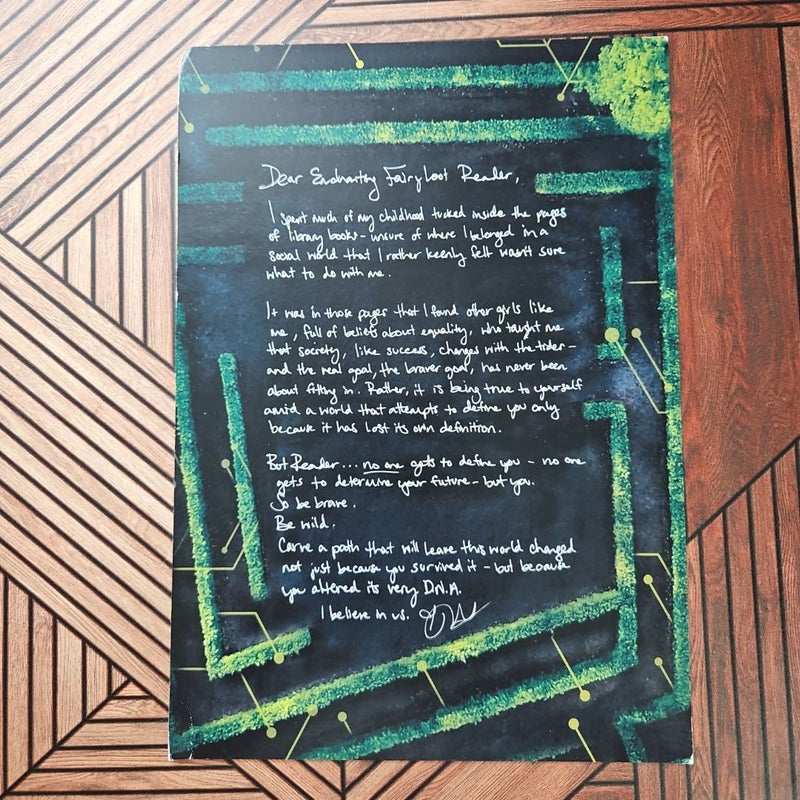 Dear Enchanting FairyLoot Reader,
I spent much of my childhood tucked inside the pages
of library books - unsure of where I belonged in a
social world that I rather keenly felt wasn't sure
what to do with me.
It was in those pages that I found other girls like
me, full of beliefs about equality, who taught me
that society, like success, changes with the tides -
and the real goal, the braver goal, has never been
about fitting in. Rather, it is being true to yourself
amid a world that attempts to define you only
because it has lost its own definition.
But Reader... no one gets to define you - no one
gets to determine your future - but you.
So be brave.
Be wild.
Carve a path that will leave this world changed
not just because you survived it - but because
you altered its very DNA.
I believe in us.